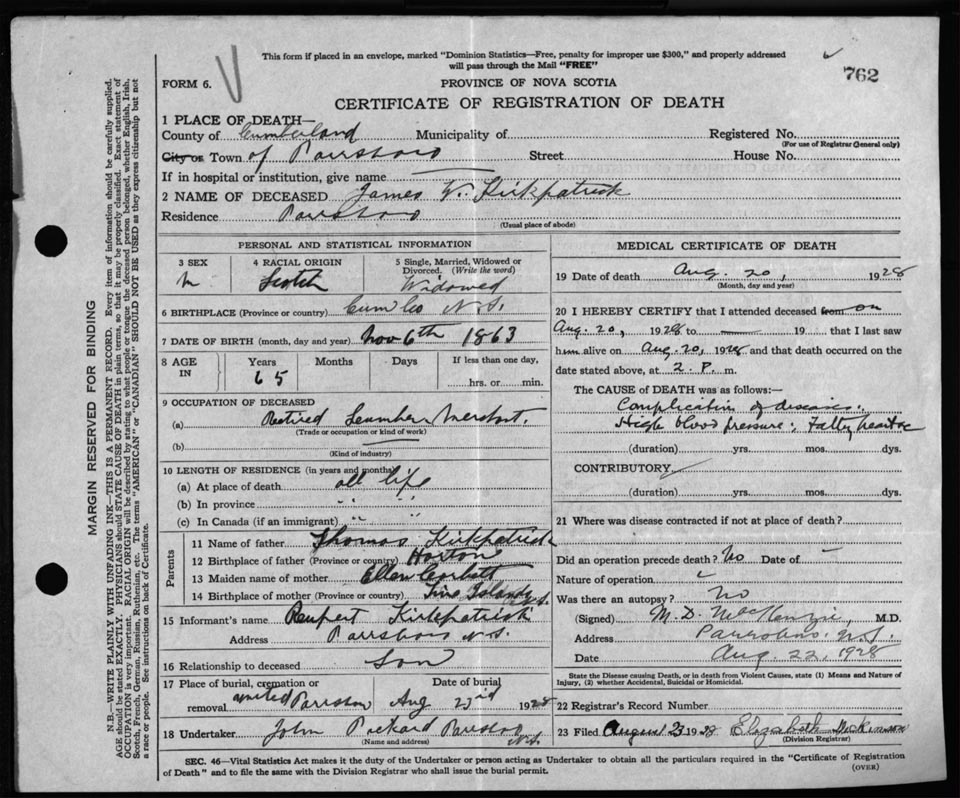 This form if placed in an envelope, marked "Dominion Statistics—Free, penalty for improper use $300," and properly addressed
will pass through the Mail "FREE"
762
FORM 6.
PROVINCE OF NOVA SCOTIA
CERTIFICATE OF REGISTRATION OF DEATH
1 PLACE OF DEATH—
County of Cumberland Municipality of Registered No.
(For use of Registrar General only)
City or Town of Parrsboro Street House No.
If in hospital or institution, give name
2 NAME OF DECEASED James W. Kirkpatrick
Residence Parrsboro
(Usual place of abode)
PERSONAL AND STATISTICAL INFORMATION
3 SEX 4 RACIAL ORIGIN 5 Single, Married, Widowed or
Divorced. (Write the word)
M Scotch Widowed
6 BIRTHPLACE (Province or country) Cum Co N.S.
7 DATE OF BIRTH (month, day and year) Nov 6th 1863
8 AGE IN Years Months Days If less than one day,
65 hrs. or min.
9 OCCUPATION OF DECEASED
(a) Retired Lumber Merchant.
(Trade or occupation or kind of work)
(b)
(Kind of industry)
10 LENGTH OF RESIDENCE (in years and months)
(a) At place of death all life
(b) In province " "
(c) In Canada (if an immigrant) " "
Parents
11 Name of father Thomas Kirkpatrick
12 Birthplace of father (Province or country) Horton
13 Maiden name of mother Ellen Corbett
14 Birthplace of mother (Province or country) Islands N.S.
15 Informant's name Rupert Kirkpatrick
Address Parrsboro N.S.
16 Relationship to deceased Son
17 Place of burial, cremation or Date of burial
removal united Parrsboro Aug 23rd 1928
18 Undertaker John Pickard Parrsboro N.S.
(Name and address)
MEDICAL CERTIFICATE OF DEATH
19 Date of death Aug. 20, 1928
(Month, day and year)
20 I HEREBY CERTIFY that I attended deceased from on
Aug. 20, 1928 to 19 that I last saw
him alive on Aug. 20, 1928 and that death occurred on the
date stated above, at 2. P. m.
The CAUSE of DEATH was as follows:—
Complication of diseases.
High blood pressure; Fatty heart &c
(duration) yrs. mos. dys.
CONTRIBUTORY
(duration) yrs. mos. dys.
21 Where was disease contracted if not at place of death?
Did an operation precede death? No Date of
Nature of operation
Was there an autopsy? No
(Signed) M. D. MacKenzie, M.D.
Address Parrsboro, N.S.
Date Aug. 22, 1928
State the Disease causing Death, or in death from Violent Causes, state (1) Means and Nature of
Injury, (2) whether Accidental, Suicidal or Homicidal.
22 Registrar's Record Number
23 Filed August 23 1928 Elizabeth
(Division Registrar)
SEC. 46—Vital Statistics Act makes it the duty of the Undertaker or person acting as Undertaker to obtain all the particulars required in the "Certificate of Registration
of Death" and to file the same with the Division Registrar who shall issue the burial permit.
(OVER)
MARGIN RESERVED FOR BINDING
N.B.—WRITE PLAINLY WITH UNFADING INK—THIS IS A PERMANENT RECORD. Every item of information should be carefully supplied.
AGE should be stated EXACTLY. PHYSICIANS should STATE CAUSE OF DEATH in plain terms, so that it may be properly classified. Exact statement of
OCCUPATION is very important. RACIAL ORIGIN will be described by stating to what people or tongue the deceased person belonged, whether English, Irish,
Scotch, French, German, Russian, Ruthenian, etc. The terms "AMERICAN" or "CANADIAN" SHOULD NOT BE USED as they express citizenship but not
a race or people. See instructions on back of Certificate.